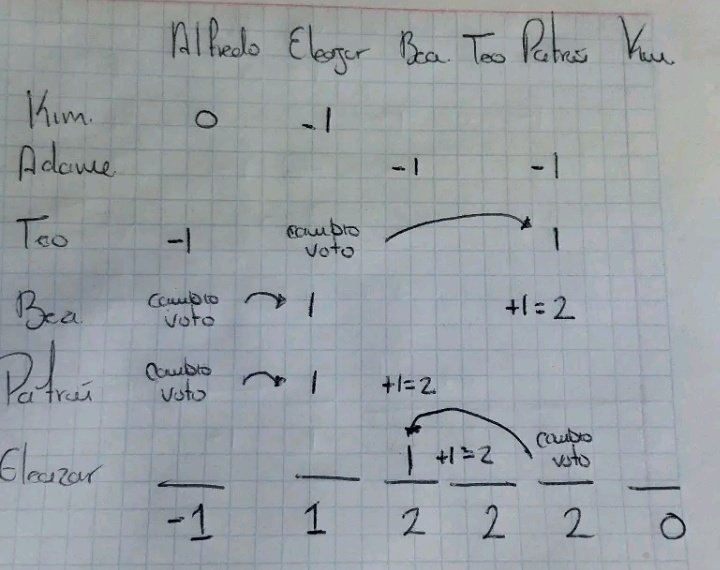 Alfredo Eleazar Bea. Teo Patricio Kim.
Kim. 0 -1
Adame -1 -1
Teo -1 cambio voto 1
Bea cambio voto 1 +1=2
cambio voto 1 +1=2
Eleazar 1 +1=2 cambio voto
-1 1 2 2 2 0